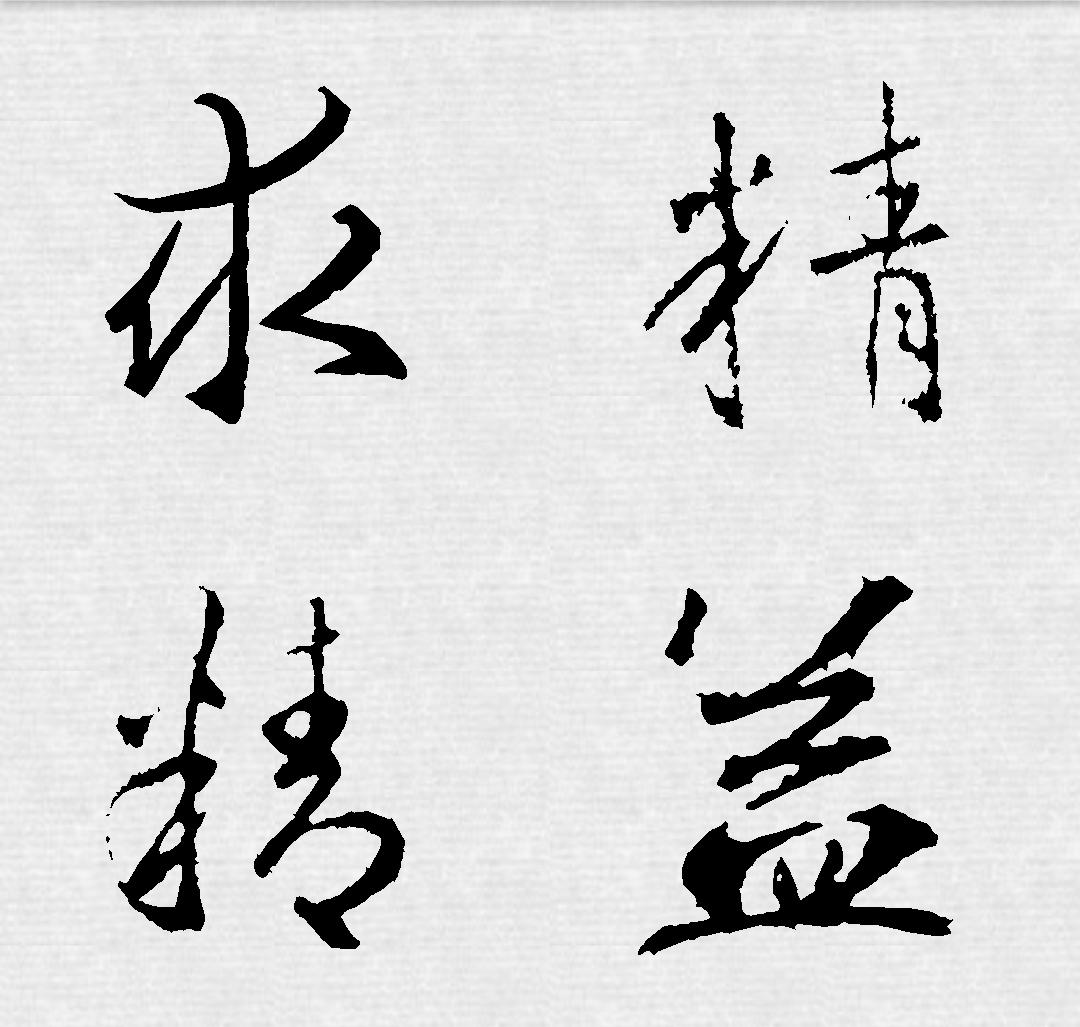 求精
精益